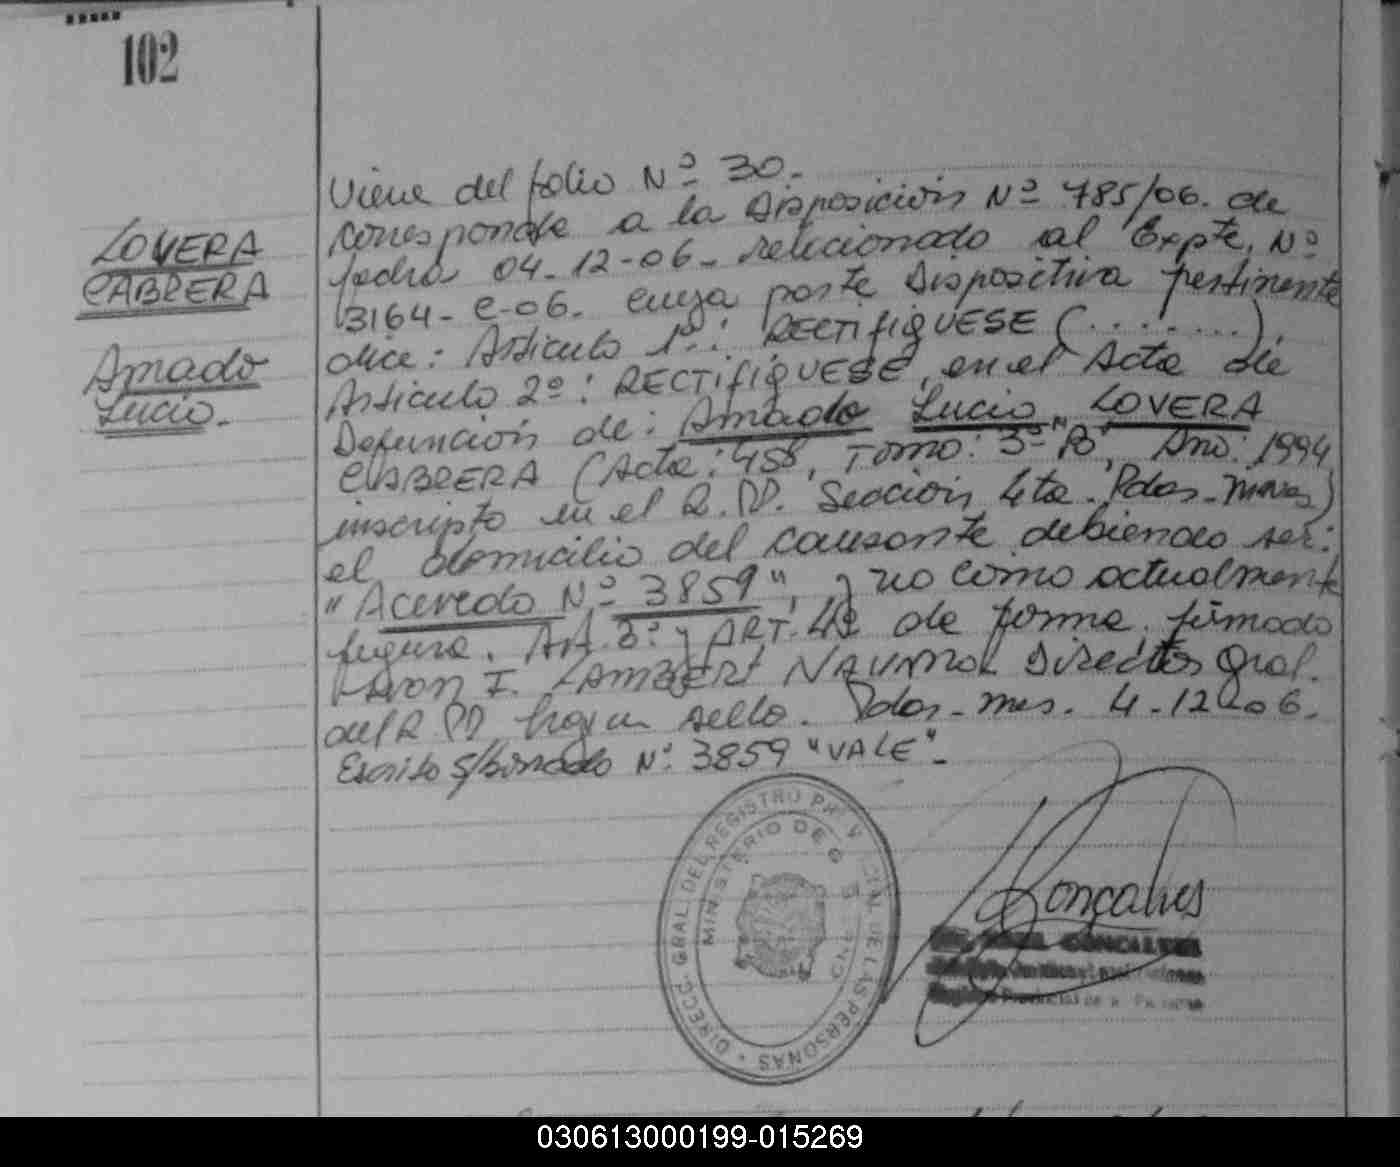 102
LOVERA
CABRERA
Amado
Lucio.
Viene del folio Nº 30.-
corresponde a la Disposición Nº 785/06. de
fecha 04-12-06- relacionado al Expte, Nº
3164- C-06. cuya parte Dispositiva pertinente
dice: Articulo 1º: RECTIFIQUESE (........).
Articulo 2º: RECTIFIQUESE, en el Acta de
Defunción de: Amado Lucio LOVERA
CABRERA (Acta: 458, Tomo: 3º "B", Año: 1994,
inscripto en el R.PP. Sección 4ta. Pdas-Mnes)
el domicilio del causante debiendo ser:
"Acevedo Nº 3859", y no como actualmente
figura. Art. 3º y ART. 4º de forma. firmado
I. LAMBERT Director Gral.
del R.PP. hay un sello. Pdas-mns. 4-12-06.
Escrito s/borrado Nº 3859 "VALE"-
DIRECC. GRAL. DEL REGISTRO PROVINCIAL DE LAS PERSONAS
MINISTERIO DE GOBIERNO
Gonçalves
GONCALVES
Registro Provincial de
030613000199-015269